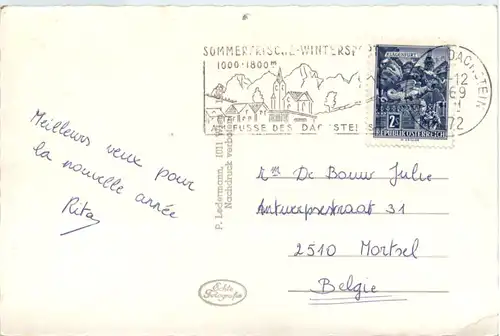 SOMMERFRISCHE-WINTERSPORT
1000-1800m
AM FUSSE DES DACHSTEINS
DACHSTEIN
-12
69
72
KLAGENFURT
2 S
REPUBLIK ÖSTERREICH
Meilleurs vœux pour
la nouvelle année
Rita
P. Ledermann, 1011 Wien
Nachdruck verboten
Mme De Bauw Julie
Antwerpsestraat 31
2510 Mortsel
Belgie
Echte
Fotografie